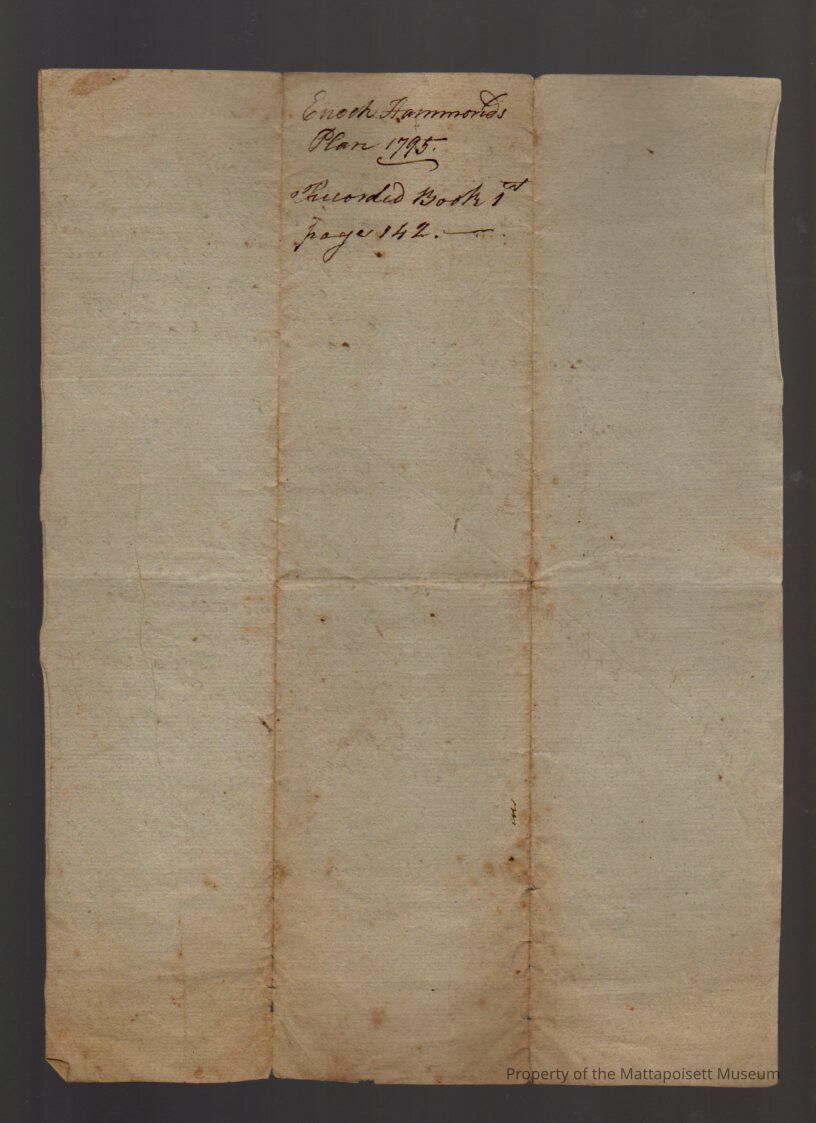 Enoch Hammonds
Plan 1795.
Recorded Book 1st
page 142. —
Property of the Mattapoisett Museum